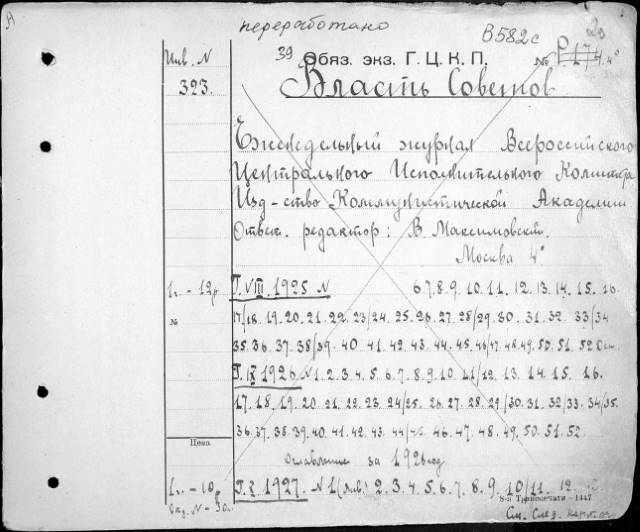 А
переработано
В582с
20
Инв. N
39 Обяз. экз. Г. Ц. К. П. № Р.174. 4°
323.
Власть Советов
Еженедельный журнал Всероссийского
Центрального Исполнительного Комитета
Изд-ство Коммунистической Академии
Ответ. редактор: В. Максимовский.
Москва 4°
1г.-12р Г. VIII. 1925 N 6.7.8.9.10.11. 12. 13. 14. 15. 16.
№ 17/18. 19. 20. 21. 22. 23/24. 25. 26. 27. 28/29. 30. 31. 32. 33/34
35. 36. 37. 38/39. 40. 41. 42. 43. 44. 45. 46/47. 48. 49. 50. 51. 52
Г. IX 1926 N 1. 2. 3. 4. 5. 6. 7. 8. 9. 10. 11/12. 13. 14. 15. 16.
17. 18. 19. 20. 21. 22. 23. 24/25. 26. 27. 28. 29/30. 31. 32/33. 34/35.
36. 37. 38. 39. 40. 41. 42. 43. 44/45. 46. 47. 48. 49. 50. 51. 52.
Цена
Оглавление за 1926 год.
1г.-10р. Г. X. 1927. N 1 (янв.) 2. 3. 4. 5. 6. 7. 8. 9. 10/11. 12.
8-я Типопечати-1447
N-30к.
См. след. карточ.